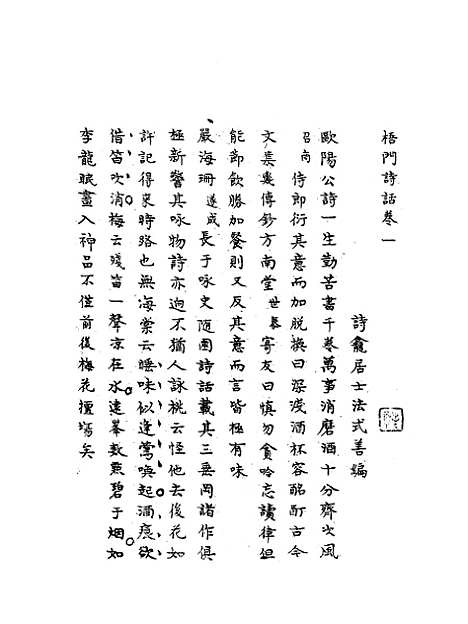 梧門詩話卷一
詩龕居士法式善編
歐陽公詩一生勤苦書千卷萬事消磨酒十分齊次風
召南侍郎衍其意而加脫換曰深淺酒杯容酩酊古今
文集幾傳鈔方南堂世舉寄友曰慎勿貪吟忘讀律但
能節飲勝加餐則又反其意而言皆極有味
嚴海珊遂成長于咏史隨園詩話載其三垂岡諸作俱
極新警其咏物詩亦迥不猶人詠桃云怪他去後花如
許記得來時路也無海棠云睡味似逢鶯喚起酒痕欲
借笛吹消梅云殘笛一聲涼在水遠峯數點碧于烟如
李龍眠畫入神品不僅前後梅花擅場矣